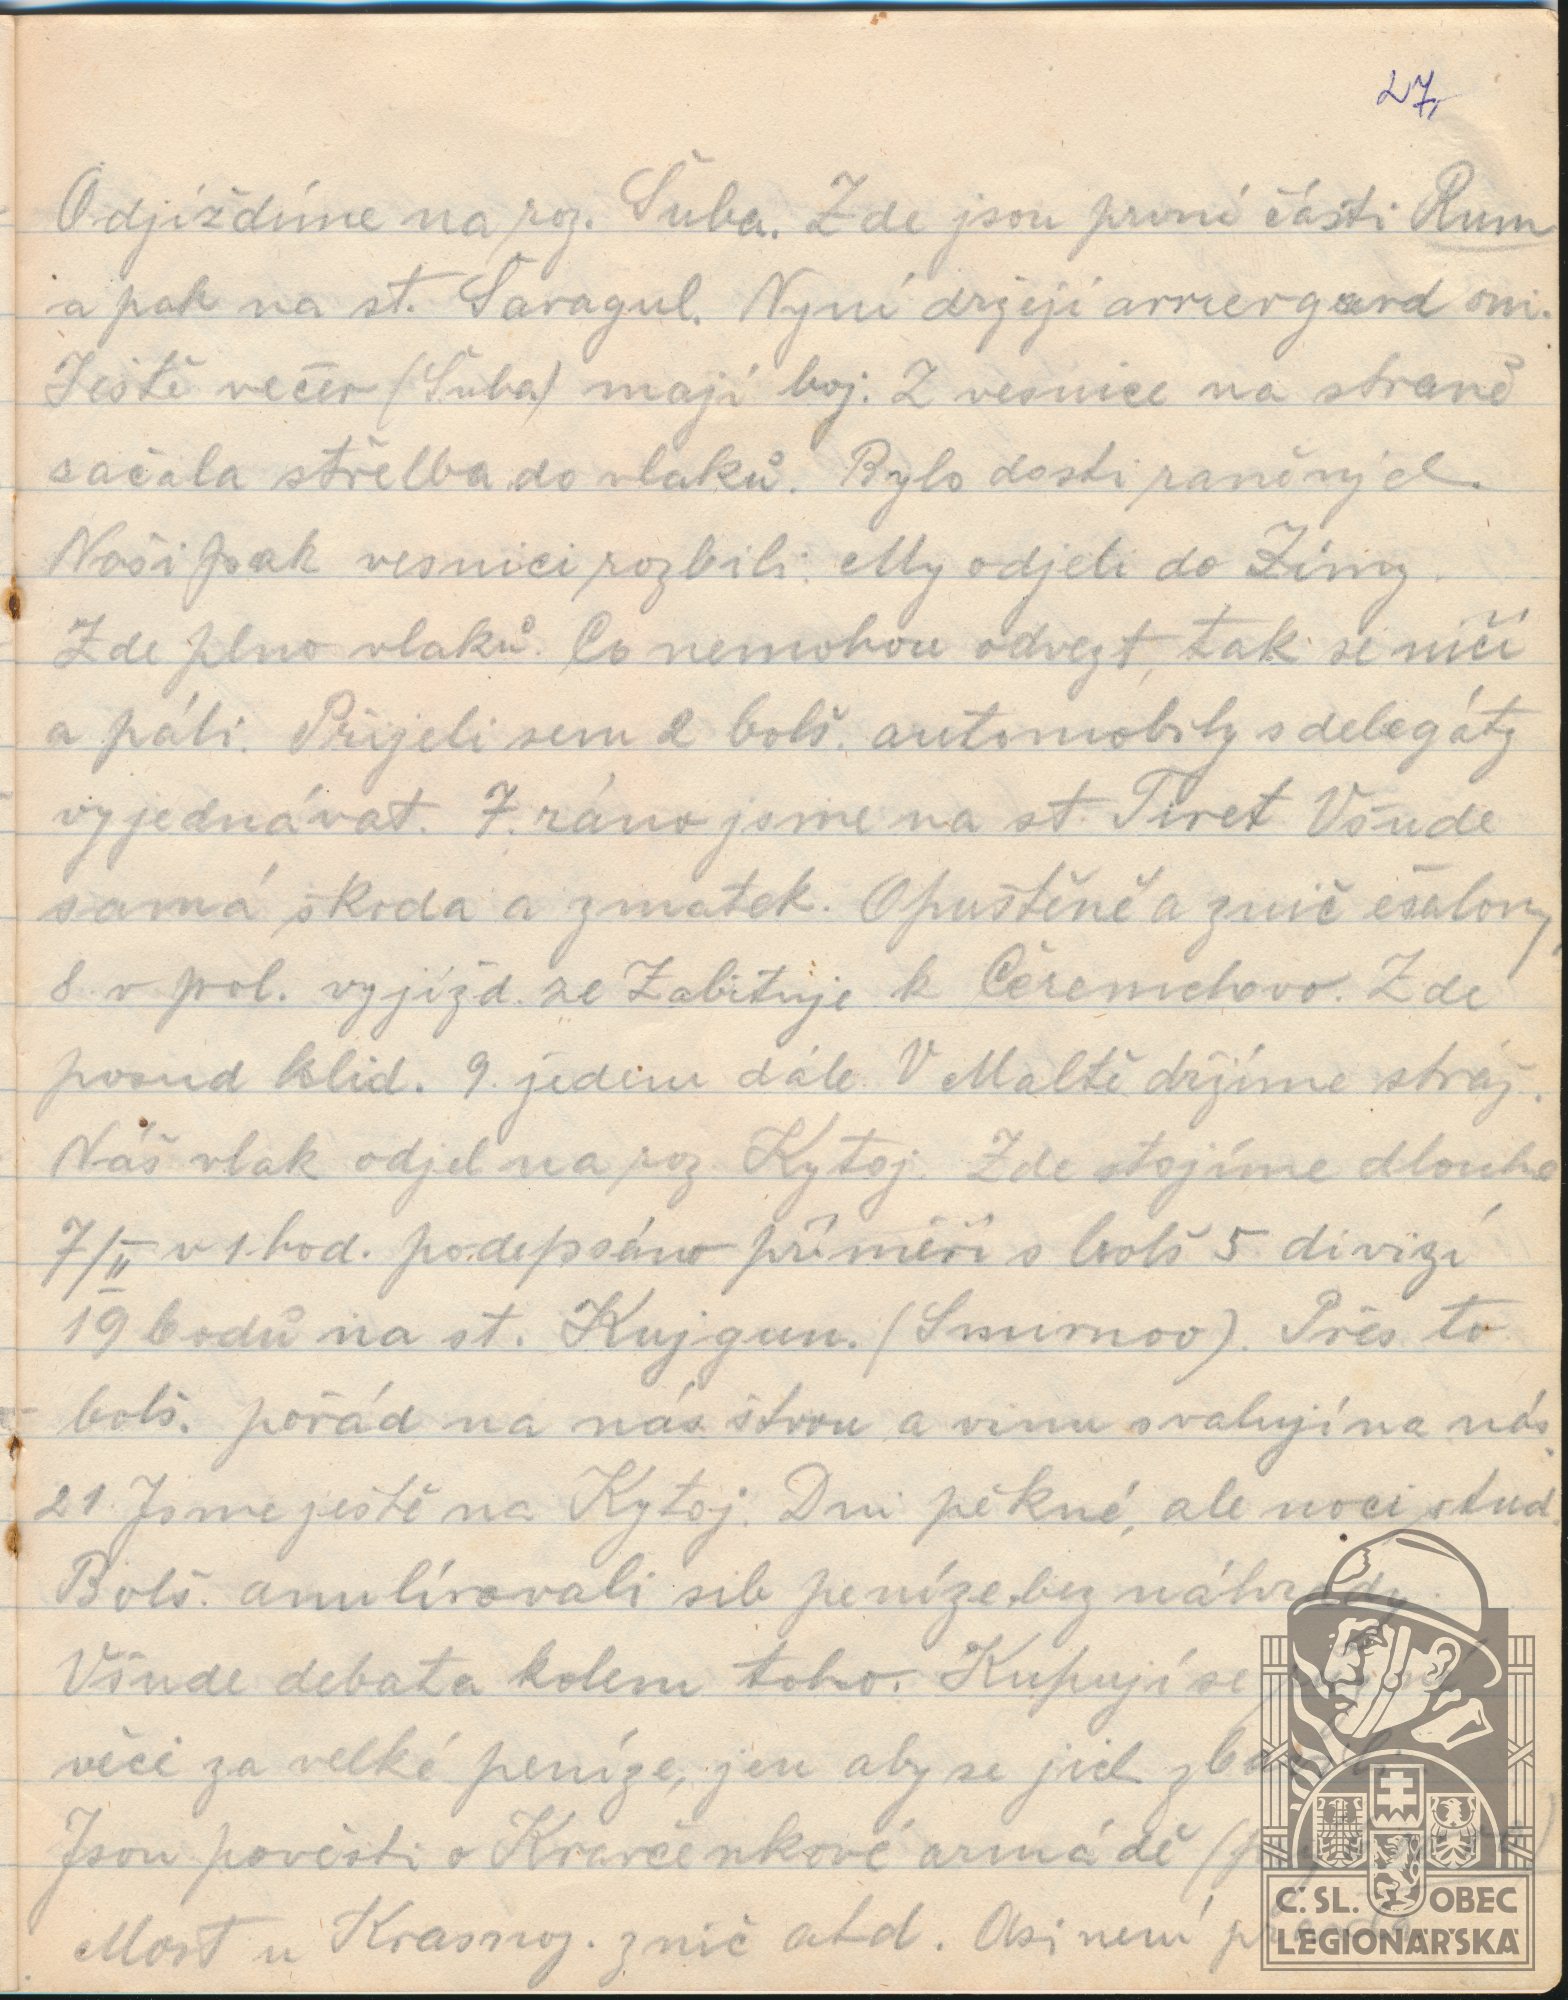 27,
Odjíždíme na roz. Šuba. Zde jsou první části Rum
a pak na st. Šaragul. Nyní držejí arriergard oni.
Ještě večer (Šuba) mají boj. Z vesnice na straně
začala střelba do vlaků. Bylo dosti raněných.
Naši pak vesnici rozbili. My odjeli do Zimy.
Zde plno vlaků. Co nemohou odvezt, tak se ničí
a páli. Přijeli sem 2 bolš. automobily s delegáty
vyjednávat. 7. ráno jsme na st. Tiret Všude
samá škoda a zmatek. Opuštěné a znič ešalony,
8 v pol. vyjížd. ze Zabituje k Čeremchovo. Zde
posud klid. 9. jedem dále. V Maltě držíme stráž.
Náš vlak odjel na roz Kytoj. Zde stojíme dlouho
7/II v 1 hod. podepsáno příměří s bolš 5. divizí
19 bodů na st. Kujgun. (Smirnov). Přes to
bolš. pořád na nás štvou a vinu svalují na nás.
21 Jsme ještě na Kytoj. Dni pěkné, ale noci stud.
Bolš. anulírovali sib peníze bez náhrady.
Všude debata kolem toho. Kupují se
věci za velké peníze, jen aby se jich zbavili.
Jsou pověsti o Kravčenkové armádě
Most u Krasnoj. znič atd. Asi není pravda.
Č. SL. OBEC
LEGIONÁŘSKÁ